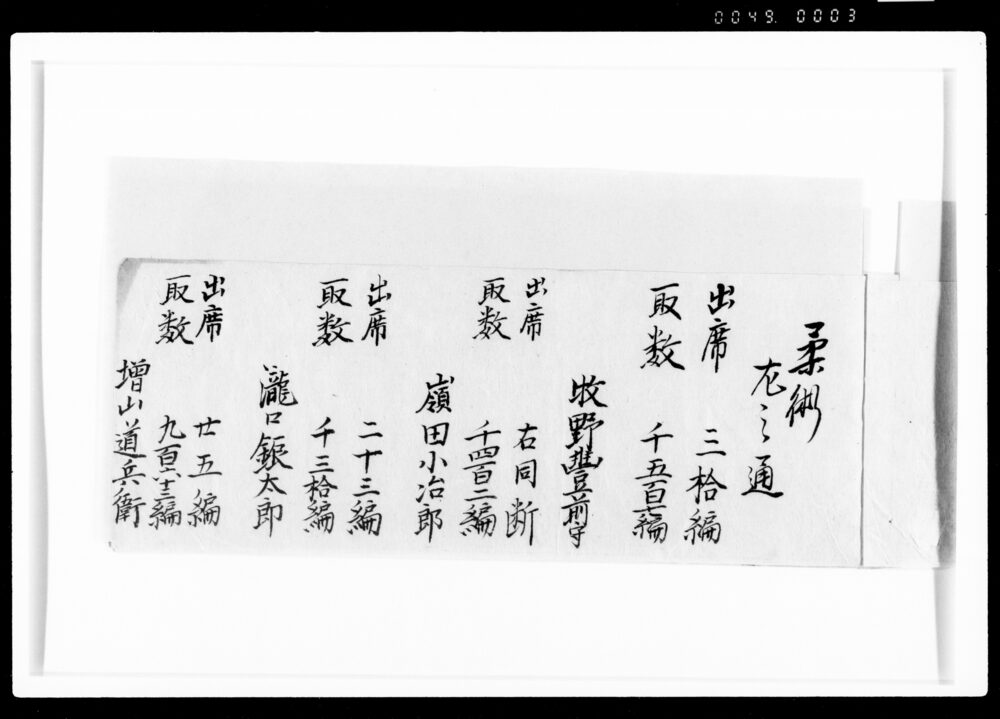 0049. 0003
柔術
左之通
出席 三拾編
取数 千五百六編
牧野豊前守
出席 右同断
取数 千四百二編
嶺田小冶郎
出席 二十三編
取数 千三拾編
瀧口鋠太郎
出席 廿五編
取数 九百六十三編
増山道兵衛